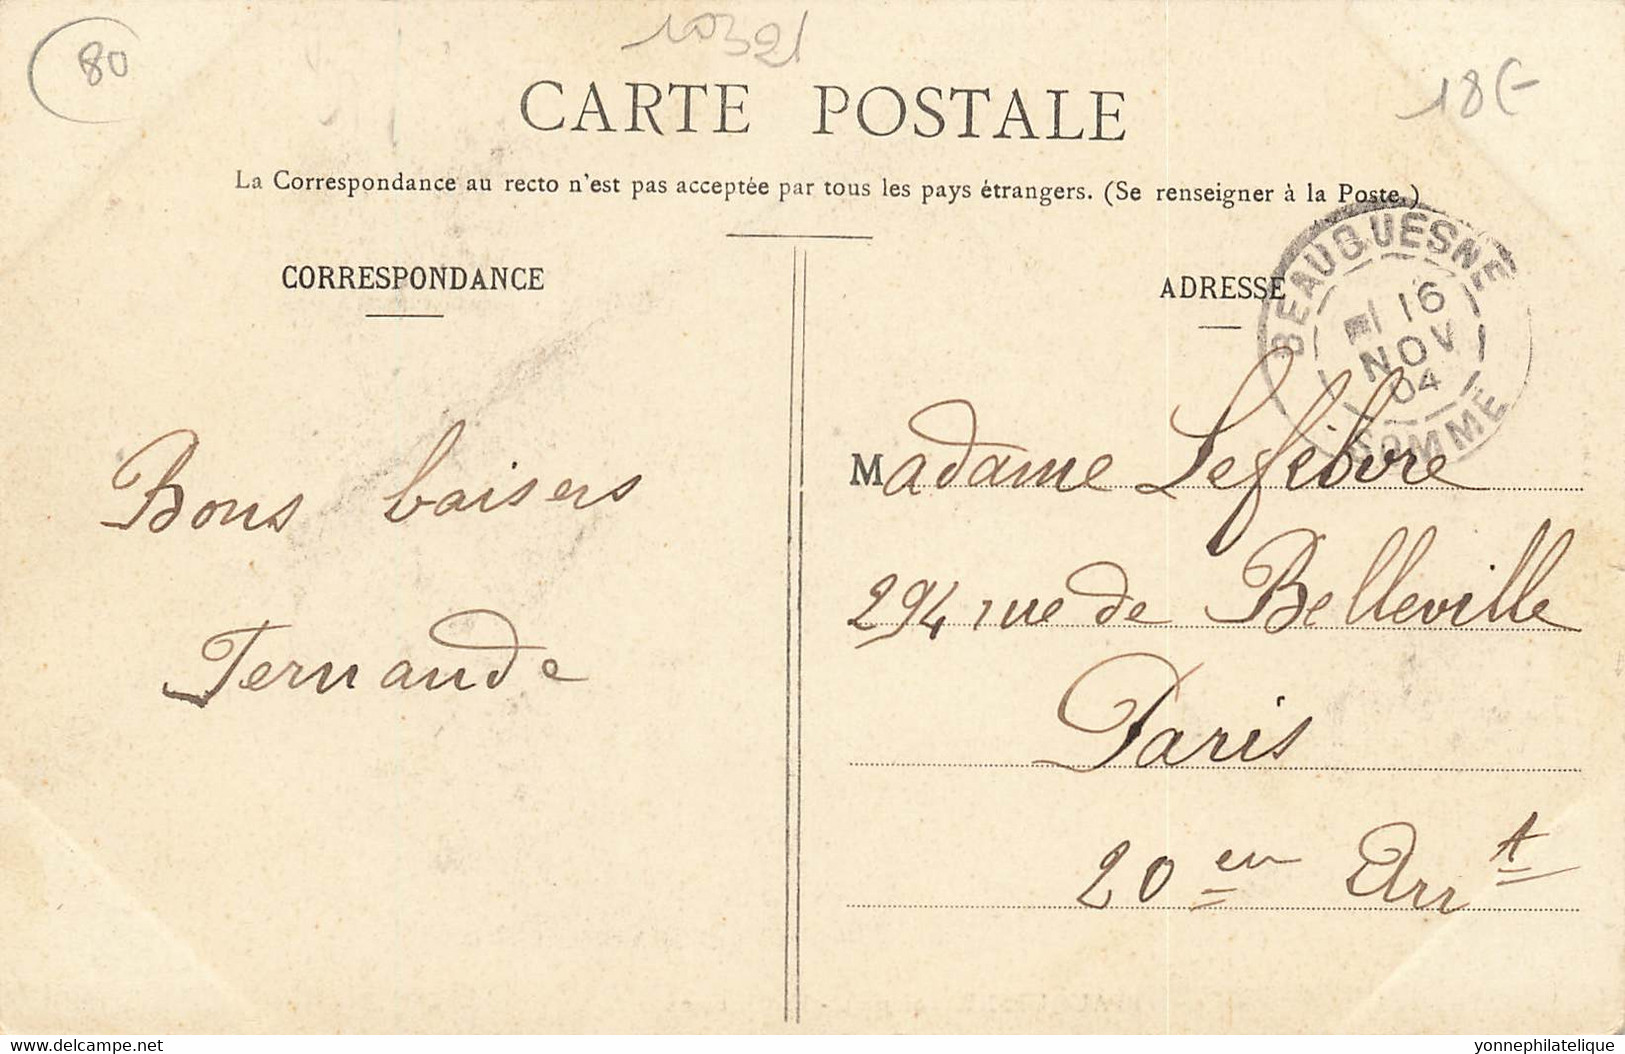 80
10321
18€
CARTE POSTALE
La Correspondance au recto n'est pas acceptée par tous les pays étrangers. (Se renseigner à la Poste.)
CORRESPONDANCE
ADRESSE
BEAUQUESNE
16
NOV
04
SOMME
Bons baisers
Fernande
Madame Lefebvre
294 rue de Belleville
Paris
20 em Arr t
delcampe.net
yonnephilatelique